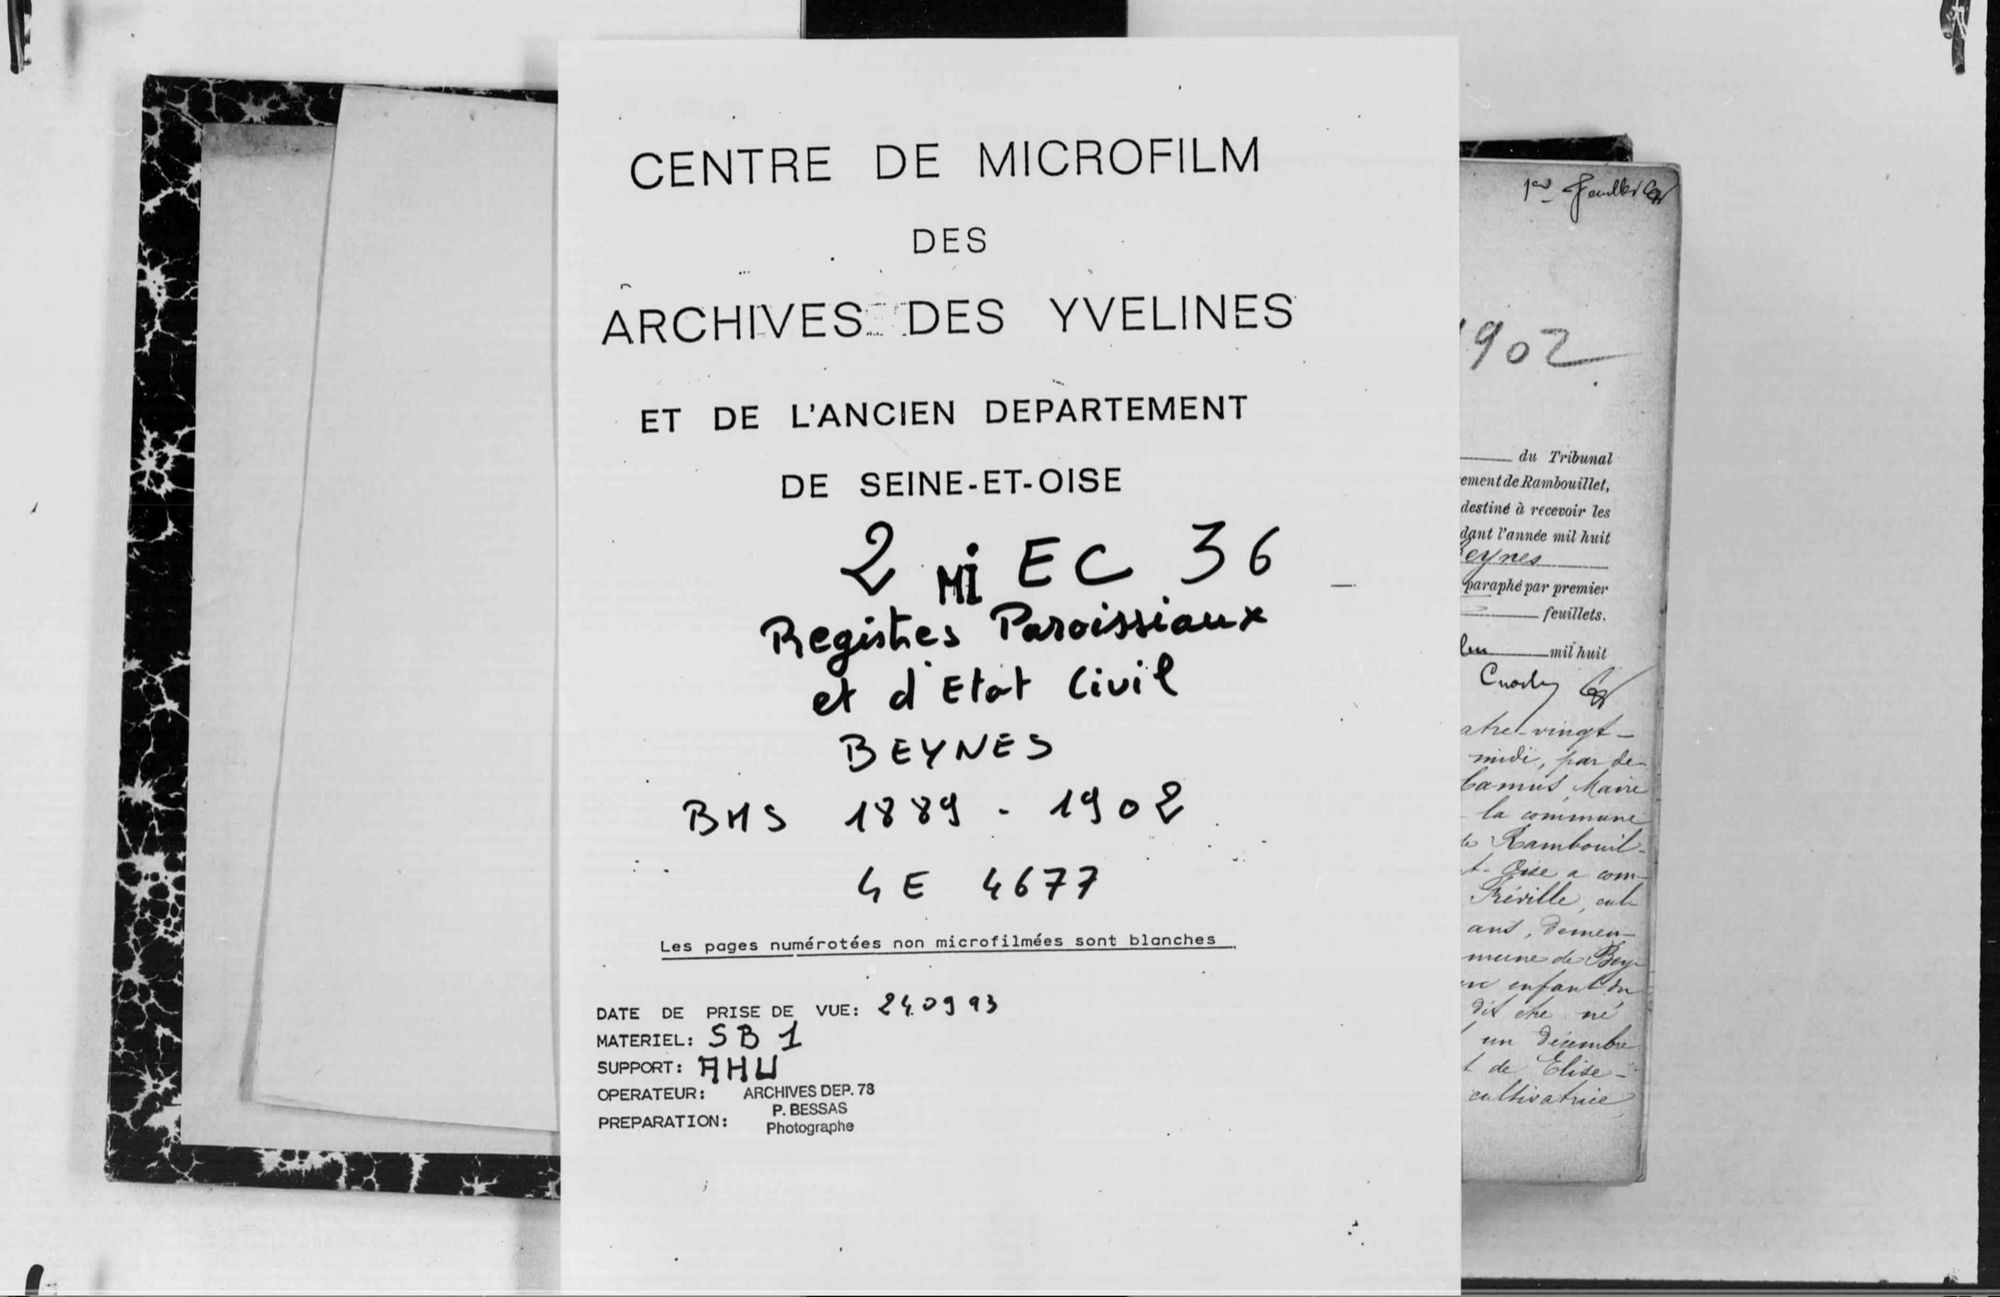 CENTRE DE MICROFILM
DES
ARCHIVES DES YVELINES
ET DE L'ANCIEN DEPARTEMENT
DE SEINE-ET-OISE
2 MI EC 36
Registres Paroissiaux
et d'Etat Civil
BEYNES
BMS 1889 - 1902
4E 4677
Les pages numérotées non microfilmées sont blanches
DATE DE PRISE DE VUE: 24.09 93
MATERIEL: SB 1
SUPPORT: AHU
OPERATEUR: ARCHIVES DEP. 78
P. BESSAS
PREPARATION: Photographe
1er
1902
du Tribunal
ement de Rambouillet,
destiné à recevoir les
dant l'année mil huit
eynes
paraphé par premier
feuillets.
mil huit
atre-vingt-
midi, par de-
Camus, Maire
la commune
de Rambouil-
t-Oise a com-
Fréville, cul-
ans, demeu-
mune de Bey-
un enfant du
dit être né
un décembre
t de Elise-
cultivatrice